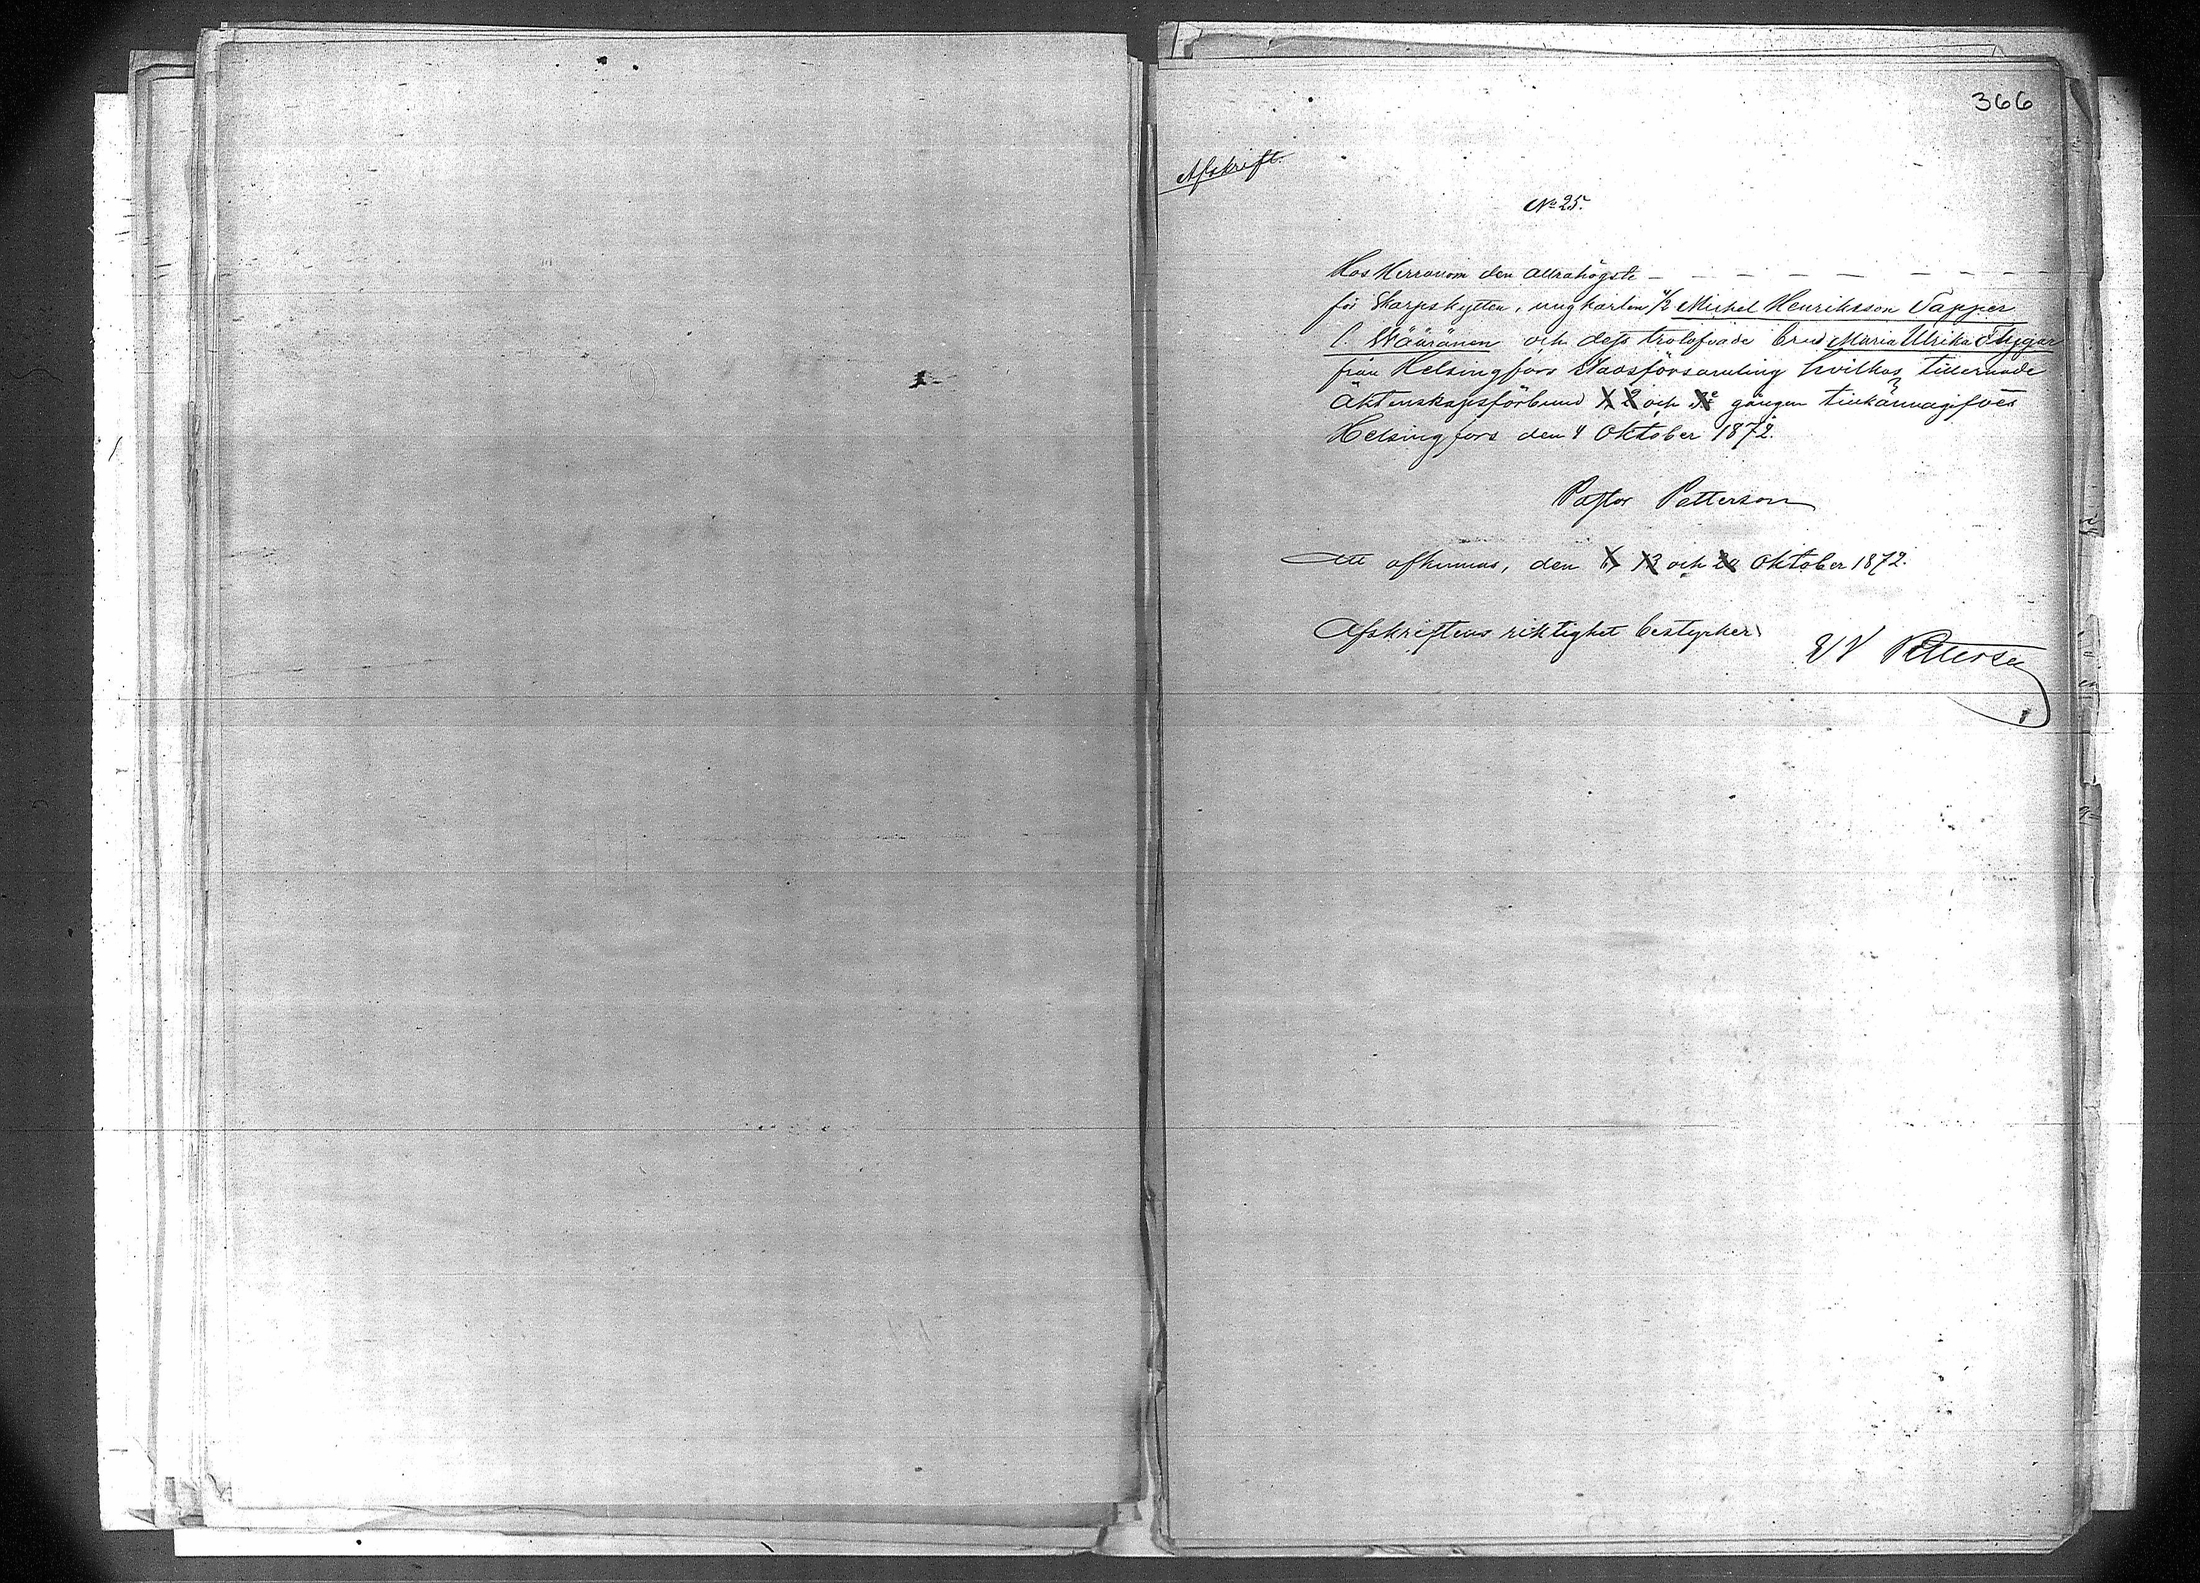 366
Afskrift.
No 25.
Hos Herranom den allrahögste — — — — — — —
för Skarpskytten, ungkarlen Michel Henriksson Tapper
l. Wääränen och dess trolofvade brud Maria Ulrika
från Helsingfors Stadsförsamling hvilkas tillernade
äktenskapsförbund 1, 2 och 3e gången tillkännagifves
Helsingfors den 4 Oktober 1872.
Pastor Petterson
Att afkunnas, den 6, 13 och 20 Oktober 1872.
Afskriftens riktighet bestyrker